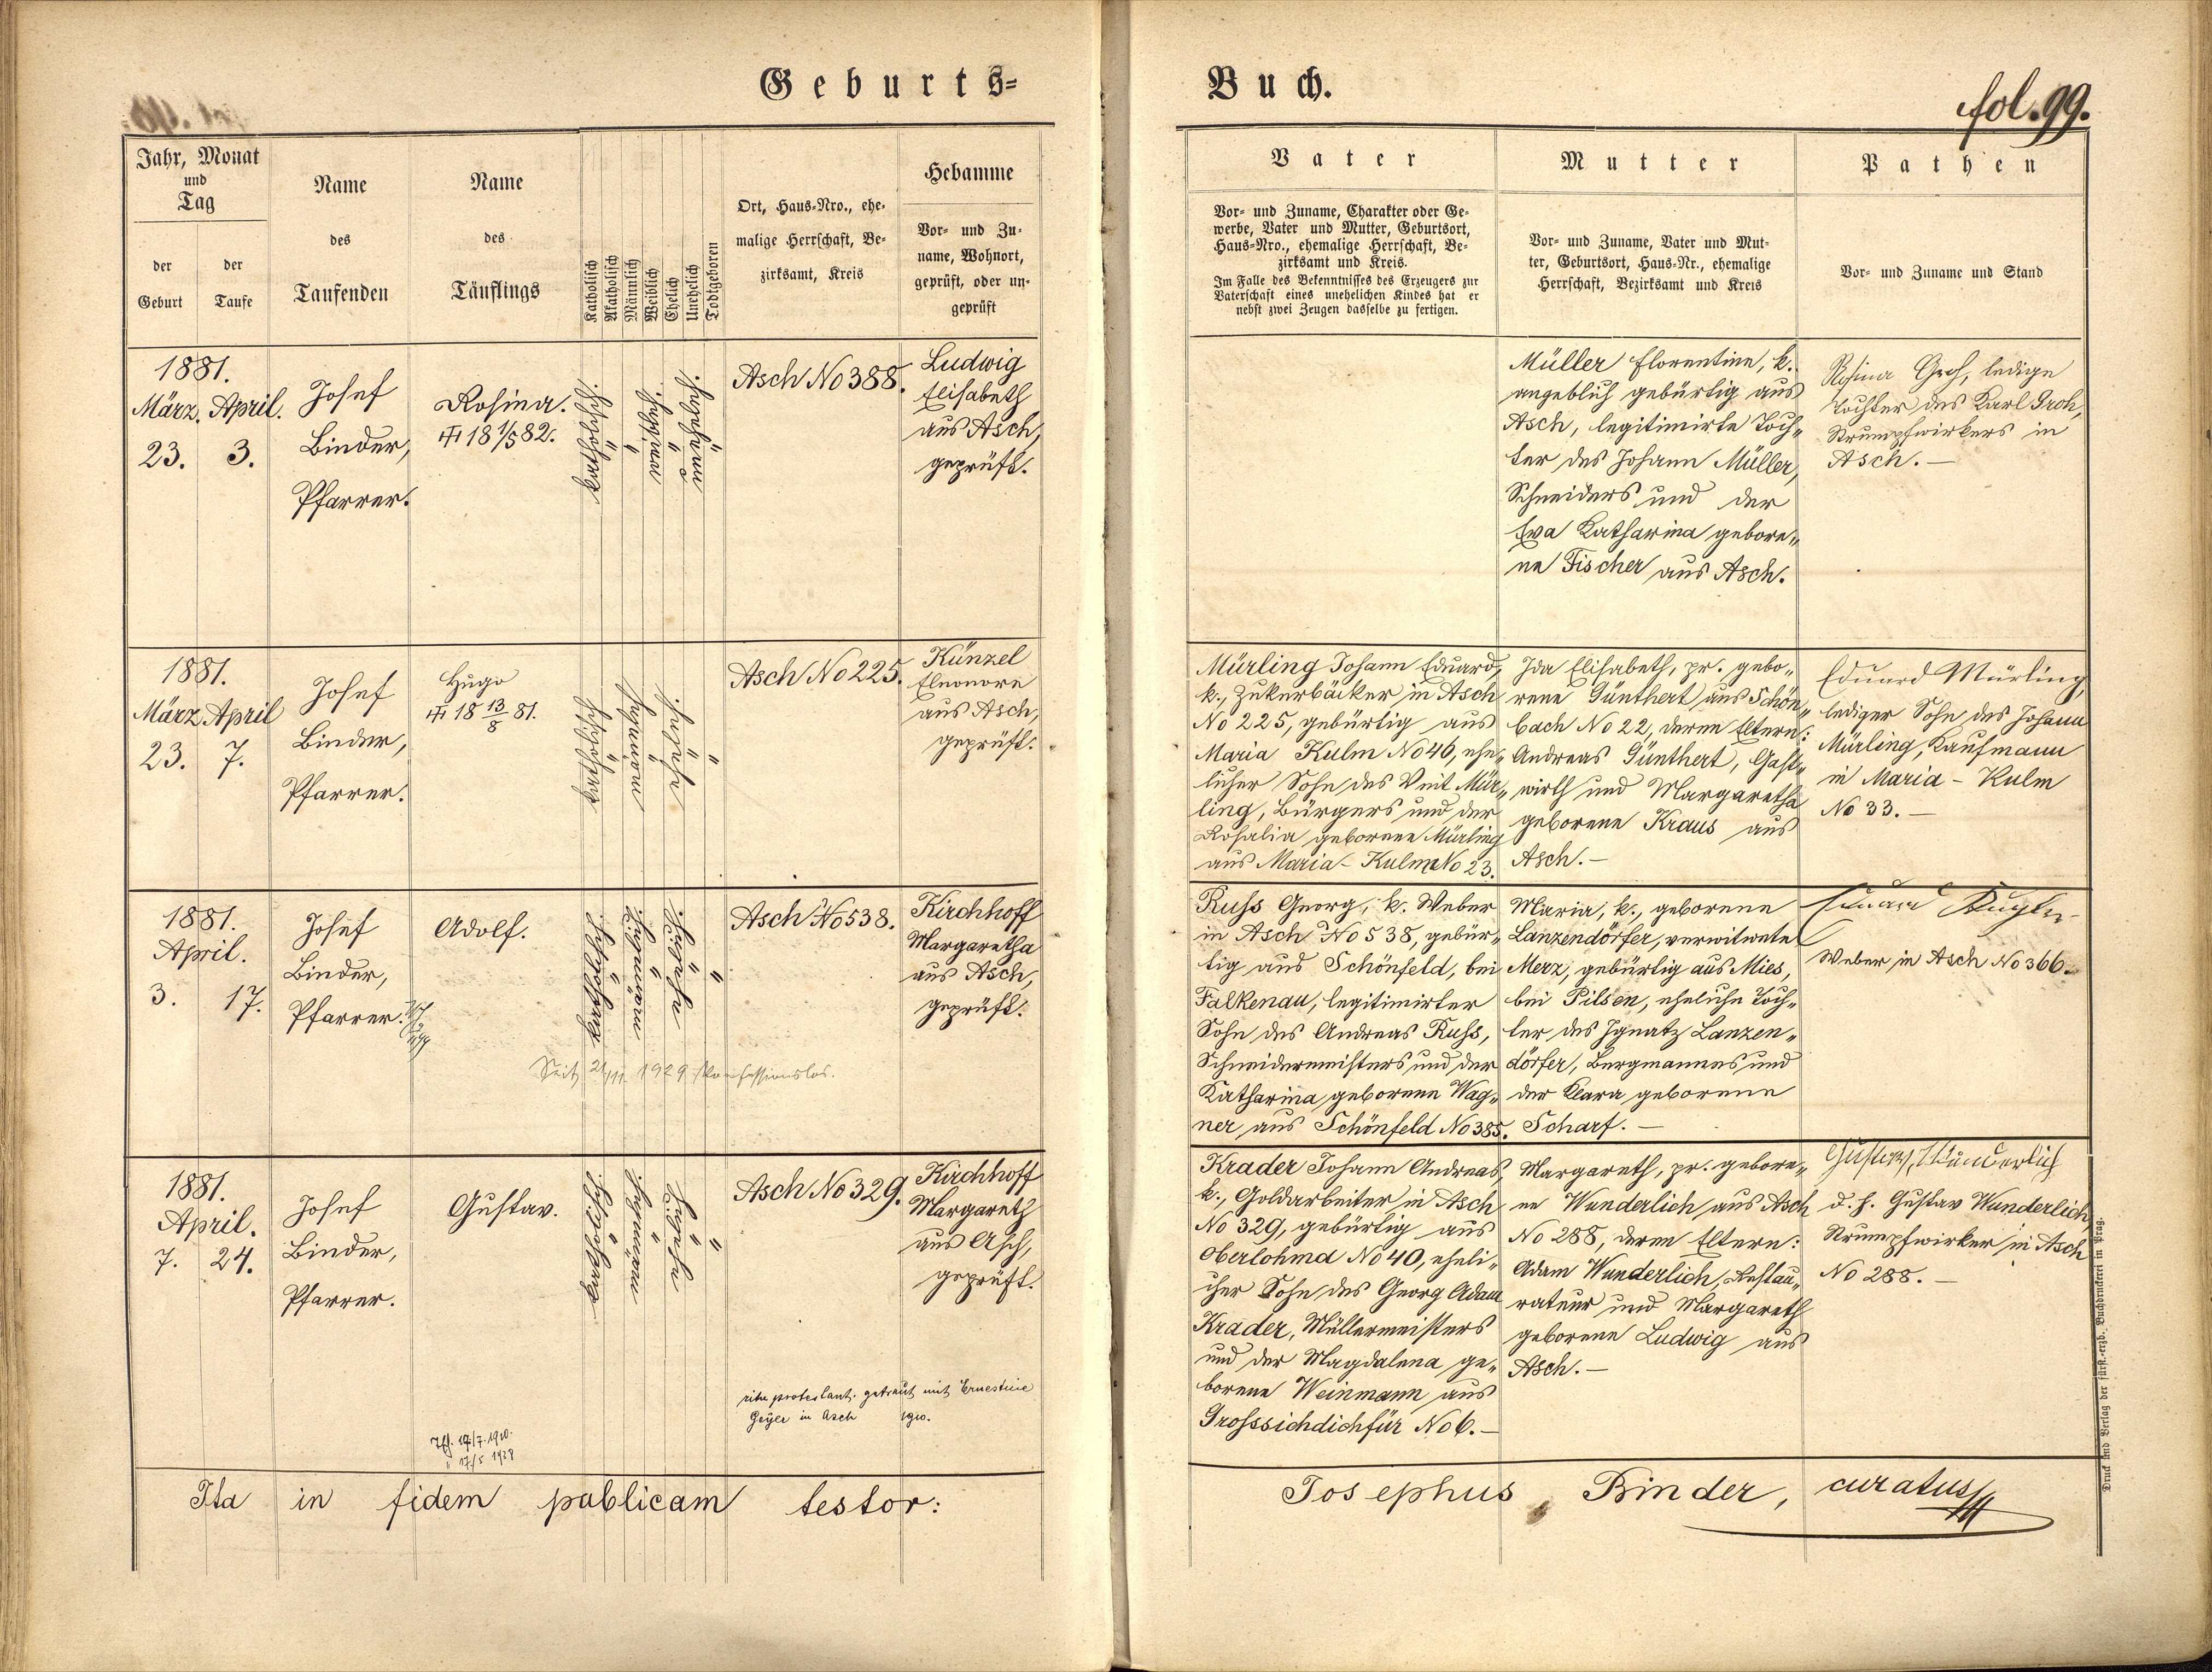 Geburts=
Buch.
fol. 99.
Jahr, Monat
und
Tag
der
Geburt
der
Taufe
Name
des
Taufenden
Name
des
Täuflings
Katholisch
Akatholisch
Männlich
Weiblich
Ehelich
Unehelich
Todtgeboren
Ort, Haus-Nro., ehe-
malige Herrschaft, Be-
zirksamt, Kreis
Hebamme
Vor- und Zu-
name, Wohnort,
geprüft, oder un-
geprüft
Vater
Vor- und Zuname, Charakter oder Ge-
werbe, Vater und Mutter, Geburtsort,
Haus-Nro., ehemalige Herrschaft, Be-
zirksamt und Kreis.
Im Falle des Bekenntnisses des Erzeugers zur
Vaterschaft eines unehelichen Kindes hat er
nebst zwei Zeugen dasselbe zu fertigen.
Mutter
Vor- und Zuname, Vater und Mut-
ter, Geburtsort, Haus-Nr., ehemalige
Herrschaft, Bezirksamt und Kreis
Pathen
Vor- und Zuname und Stand
1881.
März. April.
23. 3.
Josef
Binder,
Pfarrer.
Rosina.
18 1/5 82.
katholisch.
"
"
weiblich.
"
unehelich.
"
Asch No 388.
Ludwig
Elisabeth
aus Asch,
geprüft.
Müller Florentine, k.
angeblich gebürtig aus
Asch, legitimirte Toch„
ter des Johann Müller,
Schneiders und der
Eva Katharina gebore„
ne Fischer aus Asch.
Rosina Groh, ledige
Tochter des Karl Groh,
Strumpfwirkers in
Asch. —
1881.
März April
23. 7.
Josef
Binder,
Pfarrer.
Hugo
18 13/8 81.
katholisch.
"
männlich.
"
ehelich.
"
"
Asch No 225.
Künzel
Eleonore
aus Asch,
geprüft.
Mürling Johann Eduard,
k., Zukerbäcker in Asch
No 225, gebürtig aus
Maria Kulm No 46, ehe„
licher Sohn des Veit Mür„
ling, Bürgers und der
Rosalia geborene Mürling
aus Maria-Kulm No 23.
Ida Elisabeth, pr. gebo„
rene Günthert aus Schön„
bach No 22, deren Eltern:
Andreas Günthert, Gast„
wirth und Margaretha
geborene Kraus aus
Asch. —
Eduard Mürling,
lediger Sohn des Johann
Mürling, Kaufmann
in Maria-Kulm
No 33. —
1881.
April.
3. 17.
Josef
Binder,
Pfarrer.
Adolf.
katholisch.
"
männlich.
"
ehelich.
"
"
Seit 21/11 1929 konfessionslos.
Asch No 538.
Kirchhoff
Margaretha
aus Asch,
geprüft.
Russ Georg, k. Weber
in Asch No 538, gebür„
tig aus Schönfeld, bei
Falkenau, legitimirter
Sohn des Andreas Russ,
Schneidermeisters und der
Katharina geborene Wag„
ner aus Schönfeld No 385.
Maria, k., geborene
Lanzendörfer, verwitwete
Merz, gebürtig aus Mies,
bei Pilsen, eheliche Toch„
ter des Ignatz Lanzen„
dörfer, Bergmannes und
der Klara geborene
Scharf. —
Eduard
Weber in Asch No 366.
1881.
April.
7. 24.
Josef
Binder,
Pfarrer.
Gustav.
katholisch.
"
männlich.
"
ehelich.
"
"
Asch No 329.
Kirchhoff
Margareth
aus Asch,
geprüft.
ritu protestant. getraut mit Ernestine
Geyer in Asch 1910.
14/7. 1910.
" 17/5 1938
Krader Johann Andreas,
k., Goldarbeiter in Asch
No 329, gebürtig aus
Oberlohma No 40, eheli„
cher Sohn des Georg Adam
Krader, Müllermeisters
und der Magdalena ge„
borene Weinmann aus
Grosssichdichfür No 6. —
Margareth, pr. gebore„
ne Wunderlich aus Asch
No 288, deren Eltern:
Adam Wunderlich, Restau„
rateur und Margareth
geborene Ludwig aus
Asch. —
Gustav Wunderlich
d. h. Gustav Wunderlich
Strumpfwirker in Asch
No 288. —
Ita in fidem publicam testor:
Josephus Binder, curatus
Druck und Verlag der fürst.-erzb. Buchdruckerei in Prag.